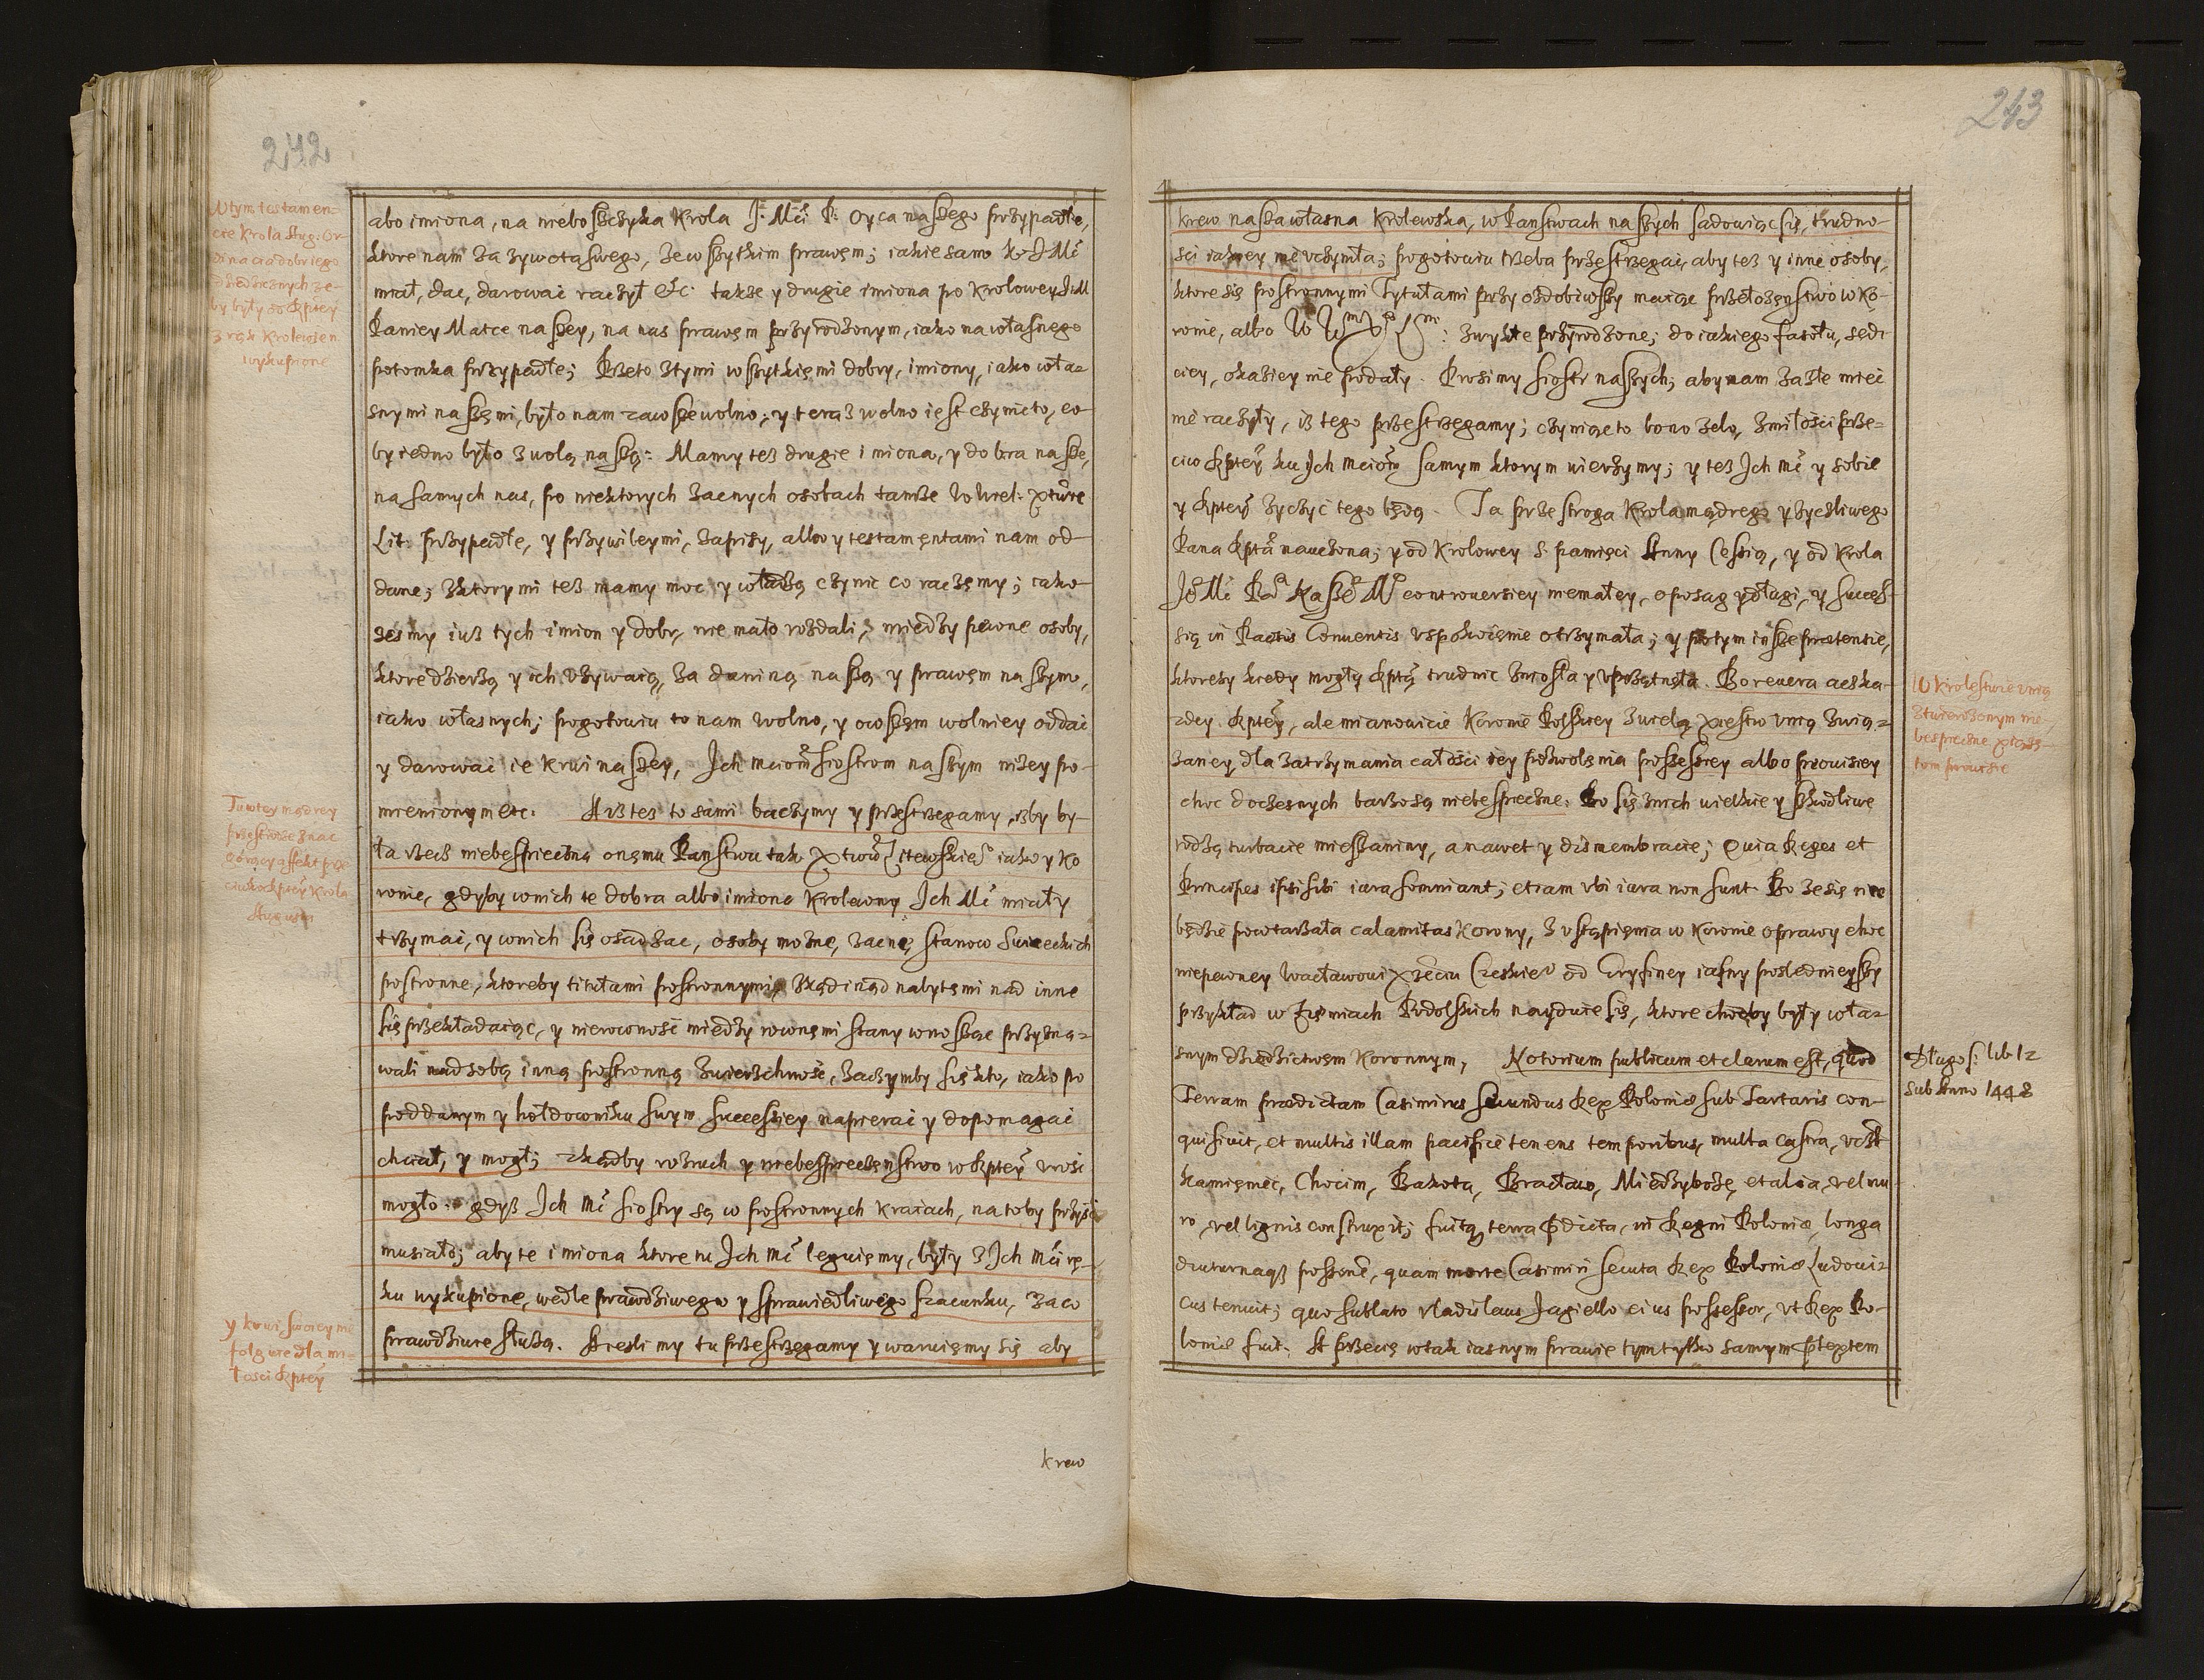 242
W tym testamen=
cie Krola Aug: Or
dinacia dobr iego
dziedzicznych że=
by były od Rptey
z rąk Krolewien
wykupione
abo imiona, na nieboszczyka Krola J: Mći P: Oyca naszego przypadłe,
ktore nam za zywota swego, ze wszytkim prawęm; iakie samo K J Mć
miał, dac, darowac raczył etc. takze y drugie imiona po Krolowey J: M
Paniey Matce naszey, na nas prawęm przyrodzonym, iako na własnego
potomka przypadłe; Przeto z tymi wszytkięmi dobry, imiony, iako wła=
snymi naszęmi, było nam zawsze wolno; y teraz wolno iest czynic to, co
by iedno było z wolą naszą: Mamy tez drugie imiona, y dobra nasze,
na samych nas, po niektorych zacnych osobach tamze w Wiel: Xtwie
Lit: przypadłe, y przywileymi, zapisy, albo y testamęntami nam od=
dane; z ktorymi tez mamy moc y władzą czynic co raczęmy; iako=
zesmy iuz tych imion y dobr, nie mało rozdali, miedzy pewne osoby,
ktore dzierzą y ich vzywaią, za daniną naszą y prawęm naszym,
iako własnych; pogotowiu to nam wolno, y owszęm wolniey oddac
y darowac ie krwi naszey, Jch mciom siostrom naszym nizey po=
mienionym etc. Asz tez to sami baczymy y przestrzegamy, zby by=
ła rzecz niebespieczna onęmu Panstwu tak Xtwu Litewskieo iako y Ko
ronie, gdyby w nich te dobra albo imiona Krolewny Jch Mć miały
trzymac, y w nich się osadzac, osoby mozne, zacne, stanow Swieckich
postronne, ktoreby titułami postronnymi, zkądinąd nabytęmi nad inne
się przekładaiąc, y nierownosć miedzy rownęmi stany wnosząc przyzna=
wali nad sobą inną postronną zwierzchnosć, zaczymby się kto, iako po
poddanym y hołdowniku swym successiey napierac y dopomagac
chciał, y mogł; zkądby rozruch y niebespieczęnstwo w Rptey vrosć
mogło: gdyż Jch Mć siostry są w postronnych kraiach, na toby przyść
musiało; aby te imiona ktore tu Jch Mć leguięmy, były z Jch Mći rę=
ku wykupione, wedle prawdziwego y sprawiedliwego szacunku, za co
prawdziwie służą. A iesli my tu przestrzęgamy y waruięmy się aby
Tu w tey mądrey
przestrodze znac
gorący affekt prze
ciwko Rptey Krola
Augusta
y krwi swoiey nie
folguie dla mi=
łosci Rptey
krew
243
krew nasza własna Krolewska, w Panstwach naszych sadowiąc się, trudno=
sci iakiey nie vczyniła; pogotowiu trzeba przestrzegac, aby tez y inne osoby,
ktore się postronnymi Tytułami przyozdobiwszy maiąc przełozęnstwo w Ko=
ronie, albo w zwykłe przyrodzone; do iakiego fasołu, sędi
ciey, okaziey nie podały. Prosimy siostr naszych, aby nam za złe miec
nie raczyły, iż tego przestrzegamy; czyniąc to bono zelo, z miłosci prze=
ciw Rptey ku Jch mciom samym ktorym wierzymy; y tez Jch Mć y sobie
y Rptey zyczyć tego będą. Ta przestroga Krola mądrego y zyczliwego
Pana Rpta nauczona; y od Krolowey S. pamięci Anny Cessią, y od Krola
Jo Mći Pa Naszo Mo controuersiey niemałey, o posag y długi, y Success=
sią in Pactis Conuentis vspokoięnie otrzymała; y potym insze praetensie,
ktoreby kiedy mogły Rptą trudnic zniosła y vprzątnęła. Bo reuera acz ka=
zdey Rptey, ale mianowicie Koronie Polskiey z wielą Xięstw vnią zwią=
zaney, dla zatrzymania całosci iey pozwolęnia possessiey albo prouisiey
choc doczesnych barzo są niebespieczne. Bo się z nich wielkie y szkodliwe
rodzą turbacie mieszaniny, a nawet y dismembracie; Quia Reges et
Principes ipsi sibi iura somniant; etiam vbi iura non sunt. Bo ze się nie
będzie powtarzała calamitas Korony, z vstąpięnia w Koronie oprawy choc
niepewney Wacławowi Xzęciu Czeskieo od Gryfiney iasny poslednieyszy
przykład w Zięmiach Podolskich nayduie się, ktore choćby były wła=
snym dziedzictwęm Koronnym, Notorium publicum et clarum est, quod
Terram praedictam Casimirus Secundus Rex Poloniæ sub Tartaris con=
quisiuit, et multis illam pacifice tenens temporibus, multa castra, vczt
Kamięniec, Chocim, Bakota, Bracław, Miedzyboze, et alia, vel mu
ro, vel lignis construxit; fuitq terra pdicta, in Regni Poloniæ, longa
diuturnaqz possone, quam morte Casimiri Secuta Rex Poloniæ Ludoui=
cus tenuit; quo sublato Vladislaus Jagiello eius possessor, vt Rex Po=
loniæ fuit. A przecię w tak iasnym prawie tym tylko samym ptextem
W Krolestwie vnią
ztwierdzonym nie
bespieczne Xiążę=
tom prouisie
Długos: lib 12
sub Anno 1448